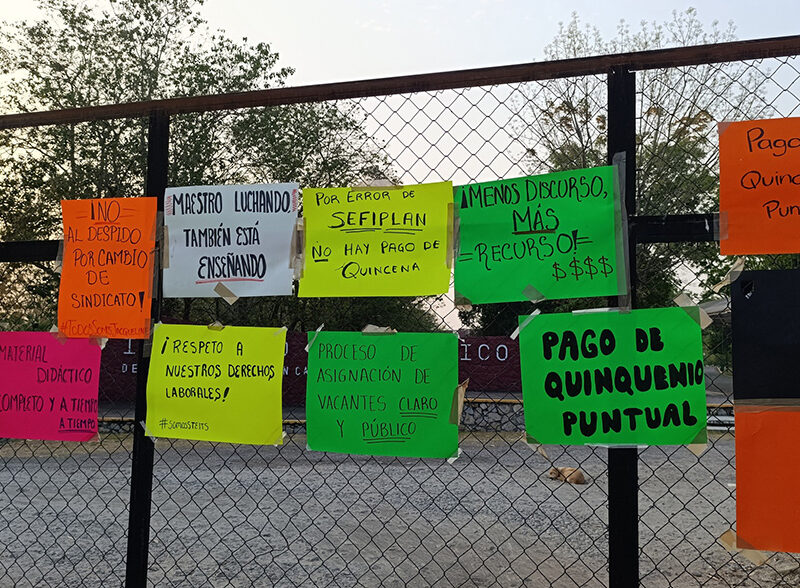 ¡NO
AL DESPIDO
POR CAMBIO
DE
SINDICATO!
#TODOSSOMOSJACQUELINE
MAESTRO LUCHANDO
TAMBIÉN ESTÁ
ENSEÑANDO
POR ERROR DE
SEFIPLAN
NO HAY PAGO DE
QUINCENA
¡MENOS DISCURSO,
MÁS
=RECURSO!=
$$$$
Pago
Quin
Pun
MATERIAL
DIDÁCTICO
COMPLETO Y A TIEMPO
A TIEMPO
¡RESPETO A
NUESTROS DERECHOS
LABORALES!
#SOMOSSTEITS
PROCESO DE
ASIGNACIÓN DE
VACANTES CLARO
Y PÚBLICO
PAGO DE
QUINQUENIO
PUNTUAL
ICO